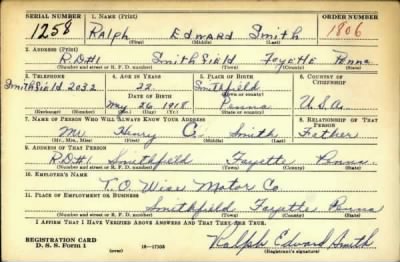 SERIAL NUMBER 1. NAME (Print) ORDER NUMBER
1258 Ralph Edward Smith 1806
(First) (Middle) (Last)
2. ADDRESS (Print)
R.D.#1 Smithfield Fayette Penna
(Number and street or R. F. D. number) (Town) (County) (State)
3. TELEPHONE 4. AGE IN YEARS 5. PLACE OF BIRTH 6. COUNTRY OF CITIZENSHIP
22 Smithfield
Smithfield 2032 DATE OF BIRTH (Town or county)
May 26 1918 Penna U.S.A.
(Exchange) (Number) (Mo.) (Day) (Yr.) (State or country)
7. NAME OF PERSON WHO WILL ALWAYS KNOW YOUR ADDRESS 8. RELATIONSHIP OF THAT PERSON
Mr. Henry C. Smith Father
(Mr., Mrs., Miss) (First) (Middle) (Last)
9. ADDRESS OF THAT PERSON
R.D.#1 Smithfield Fayette Penna.
(Number and street or R. F. D. number) (Town) (County) (State)
10. EMPLOYER'S NAME
T.O. Wise Motor Co
11. PLACE OF EMPLOYMENT OR BUSINESS
Smithfield Fayette Penna
(Number and street or R. F. D. number) (Town) (County) (State)
I AFFIRM THAT I HAVE VERIFIED ABOVE ANSWERS AND THAT THEY ARE TRUE.
REGISTRATION CARD
D. S. S. Form 1 (over) 16—17105 Ralph Edward Smith
(Registrant's signature)